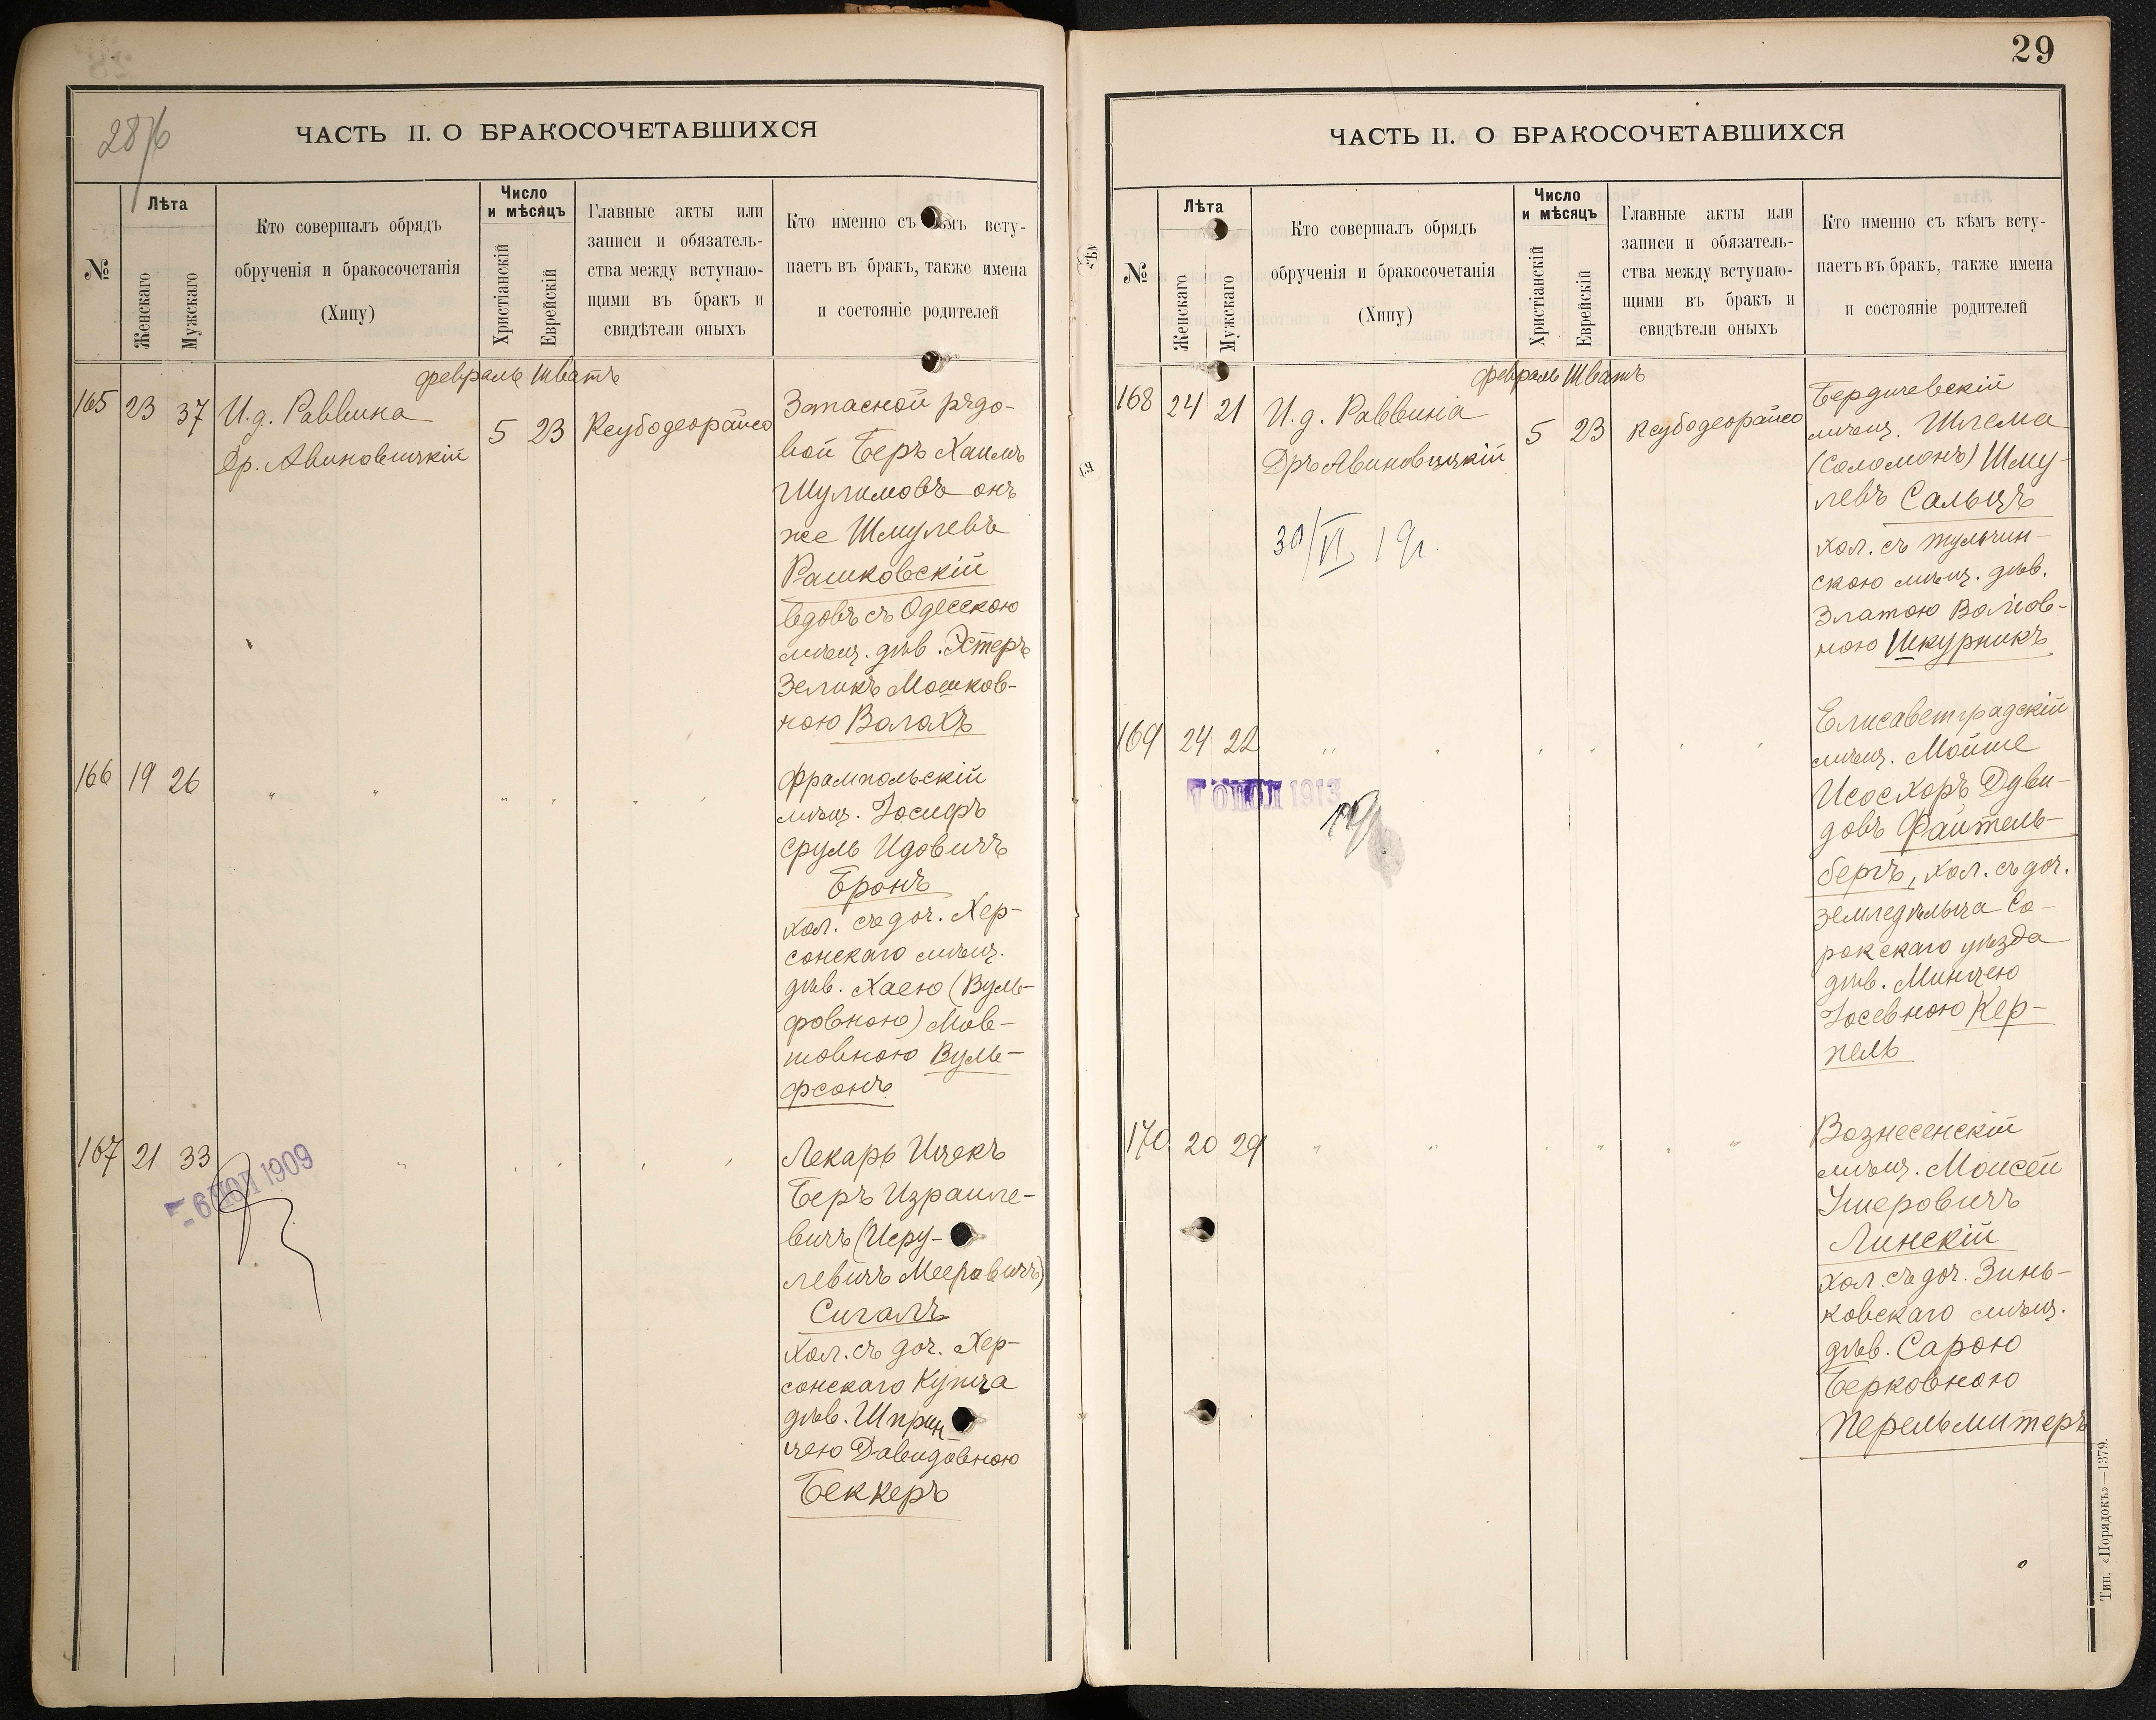 28/б
ЧАСТЬ II. О БРАКОСОЧЕТАВШИХСЯ
№
Лѣта
Женскаго
Мужскаго
Кто совершалъ обрядъ
обрученія и бракосочетанія
(Хипу)
Число
и мѣсяцъ
Христіанскій
Еврейскій
Главные акты или
записи и обязатель-
ства между вступаю-
щими въ бракъ и
свидѣтели оныхъ
Кто именно съ кѣмъ всту-
паетъ въ бракъ, также имена
и состояніе родителей
февраль Шватъ
165 23 37 И. д. Раввина 5 23 Ксубодеорайсо
Др. Авиновицкій
Запасной рядо-
вой Беръ Хаимъ
Шулимовъ онъ
же Шмулевъ
Рашковскій
вдовъ съ Одесскою
мѣщ. дѣв. Эстеръ
Зеликъ Мошков-
ною Валахъ
166 19 26 " " " " " "
Фрампольскій
мѣщ. Іосифъ
Сруль Идовичъ
Бронъ
хол. съ доч. Хер-
сонскаго мѣщ.
дѣв. Хаею (Вуль-
фовною) Мов-
шовною Вуль-
фсонъ
167 21 33 " " " " "
- 6 ИЮЛ 1909
Лекарь Ицекъ
Беръ Израиле-
вичъ (Исру-
левичъ Мееровичъ)
Сигалъ
хол. съ доч. Хер-
сонскаго Купца
дѣв. Шприн-
цею Давидовною
Беккеръ
29
ЧАСТЬ II. О БРАКОСОЧЕТАВШИХСЯ
№
Лѣта
Женскаго
Мужскаго
Кто совершалъ обрядъ
обрученія и бракосочетанія
(Хипу)
Число
и мѣсяцъ
Христіанскій
Еврейскій
Главные акты или
записи и обязатель-
ства между вступаю-
щими въ бракъ и
свидѣтели оныхъ
Кто именно съ кѣмъ всту-
паетъ въ бракъ, также имена
и состояніе родителей
февраль Шватъ
168 24 21 И. д. Раввина 5 23 Ксубодеорайсо
Дръ Авиновицкій
30/VI 19г.
Бердичевскій
мѣщ. Шлема
(Соломонъ) Шму-
левъ Сальцъ
хол. съ Тульчин-
скою мѣщ. дѣв.
Златою Волков-
ною Шкурникъ
169 24 22 " " " " " "
1913
Елисаветградскій
мѣщ. Мойше
Исосхоръ Дуви-
довъ Файтель-
бергъ, хол. съ доч.
земледѣльца Со-
рокскаго уѣзда
дѣв. Минцею
Іосевною Кер-
пель
170 20 29 " " " " "
Вознесенскій
мѣщ. Моисей
Ушеровичъ
Линскій
хол. съ доч. Зинь-
ковскаго мѣщ.
дѣв. Сарою
Берковною
Перельмитеръ
Тип. «Порядокъ»—1379.